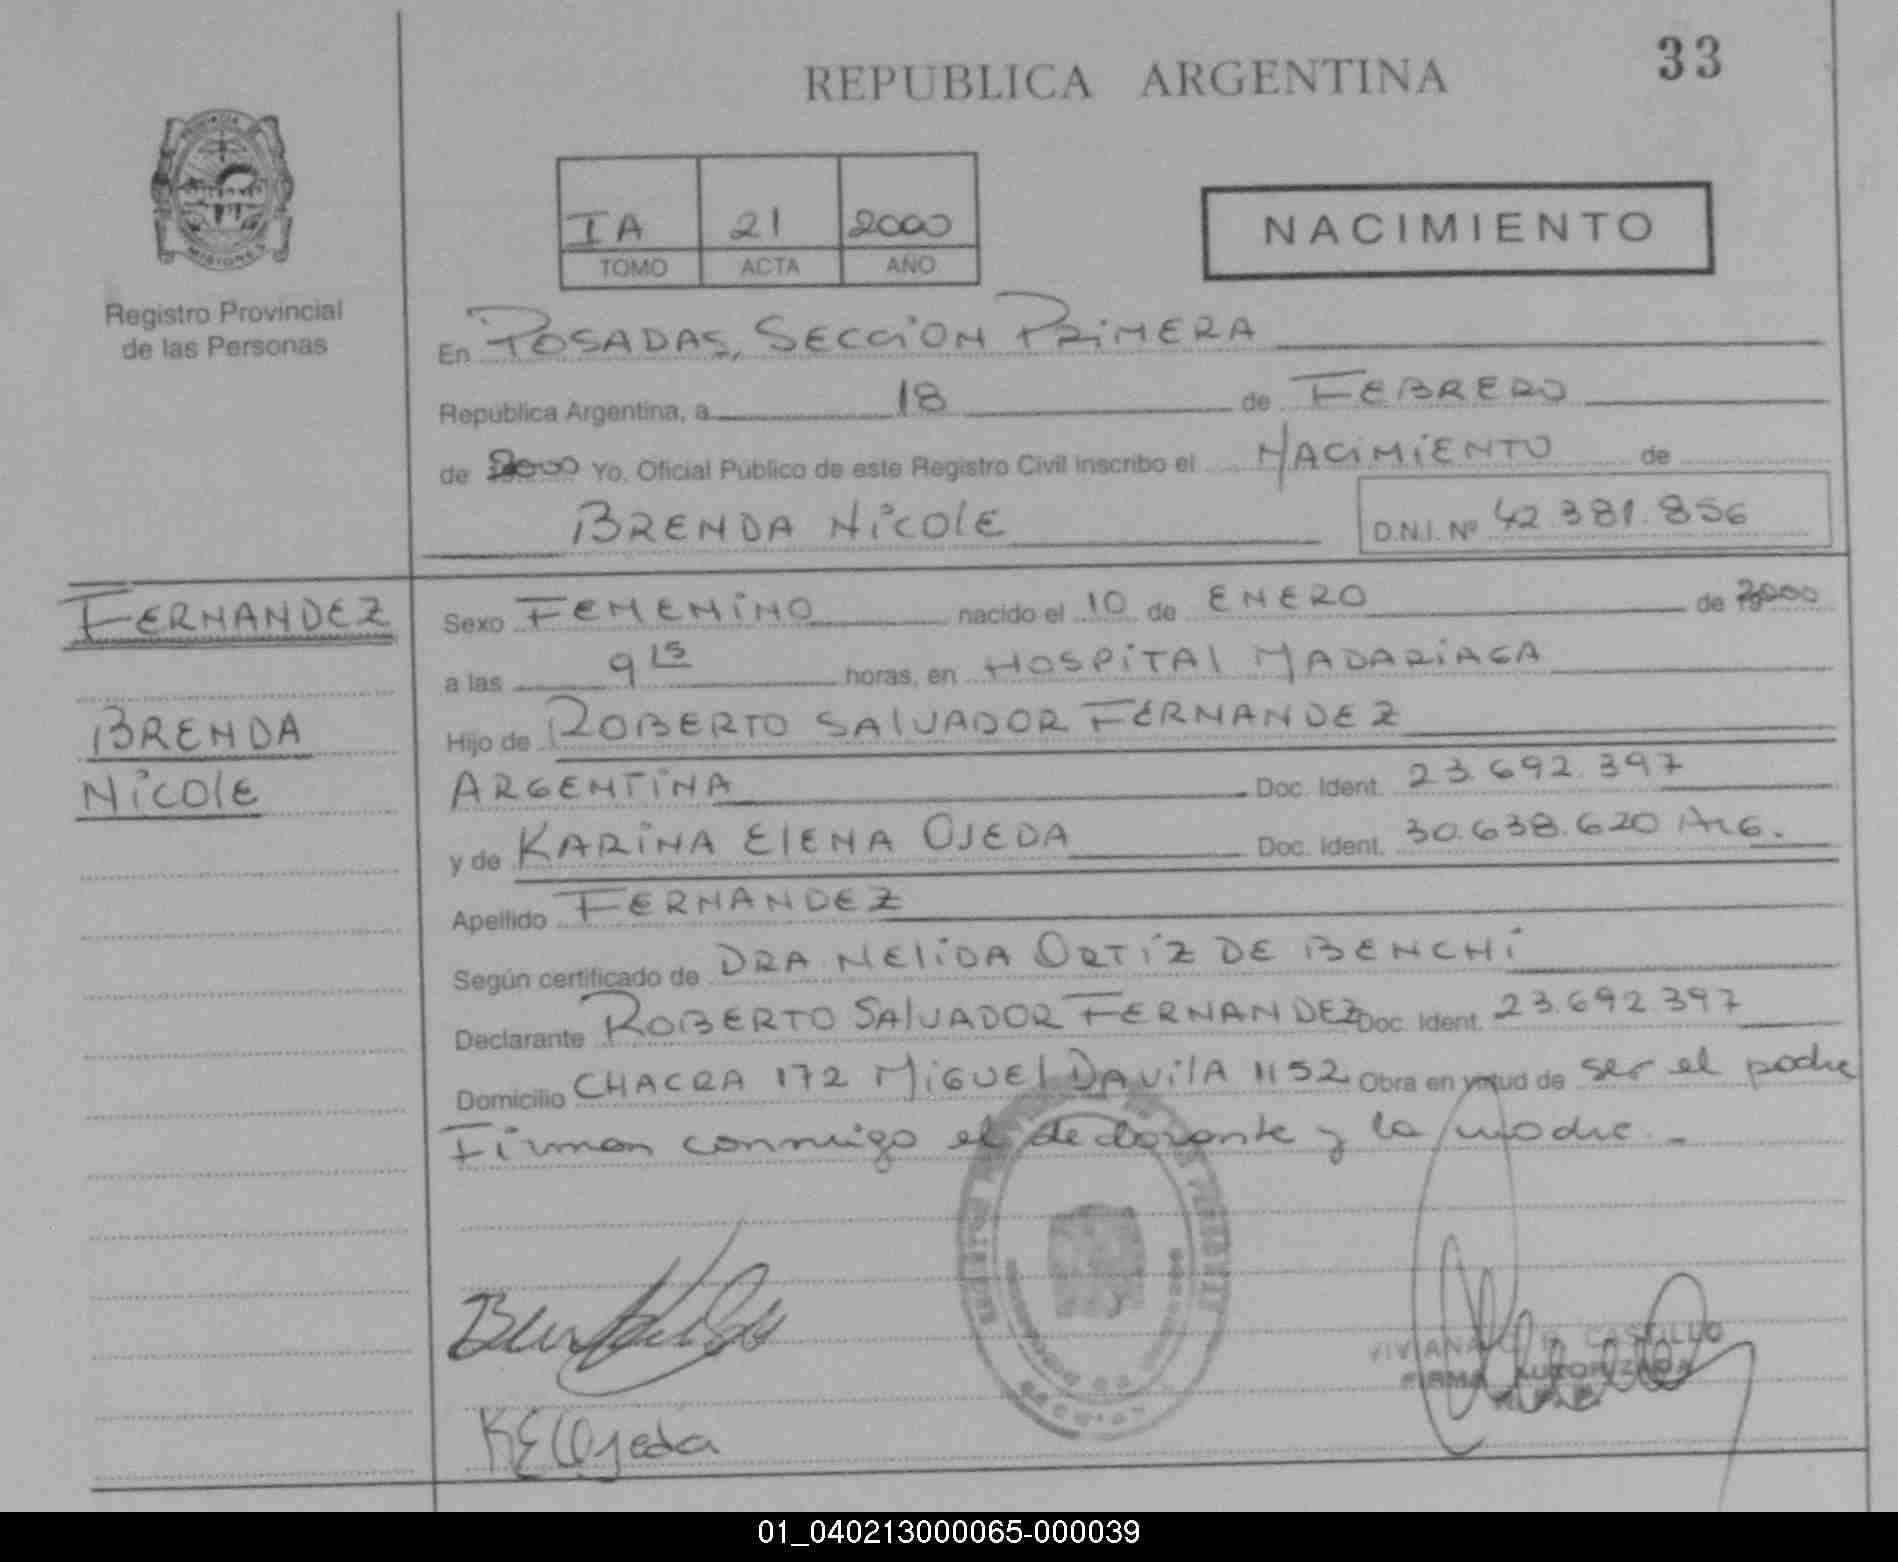 33
REPUBLICA ARGENTINA
PROVINCIA DE
MISIONES
Registro Provincial
de las Personas
IA 21 2000
TOMO ACTA AÑO
NACIMIENTO
En POSADAS, SECCION PRIMERA
República Argentina, a 18 de FEBRERO
de 2000 Yo, Oficial Público de este Registro Civil inscribo el NACIMIENTO de
BRENDA NICOLE D.N.I. Nº 42.381.856
FERNANDEZ
BRENDA
NICOLE
Sexo FEMENINO nacido el 10 de ENERO de 2000
a las 9 15 horas, en HOSPITAL MADARIAGA
Hijo de ROBERTO SALVADOR FERNANDEZ
ARGENTINA Doc. Ident. 23.692.397
y de KARINA ELENA OJEDA Doc. Ident. 30.638.620 ARG.
Apellido FERNANDEZ
Según certificado de DRA NELIDA ORTIZ DE BENCHI
Declarante ROBERTO SALVADOR FERNANDEZ Doc. Ident. 23.692.397
Domicilio CHACRA 172 MIGUEL DAVILA 1152 Obra en virtud de ser el padre
Firman conmigo el declarante y la madre.-
VIVIANA CASTILLO
FIRMA AUTORIZADA
K E Ojeda
01_040213000065-000039